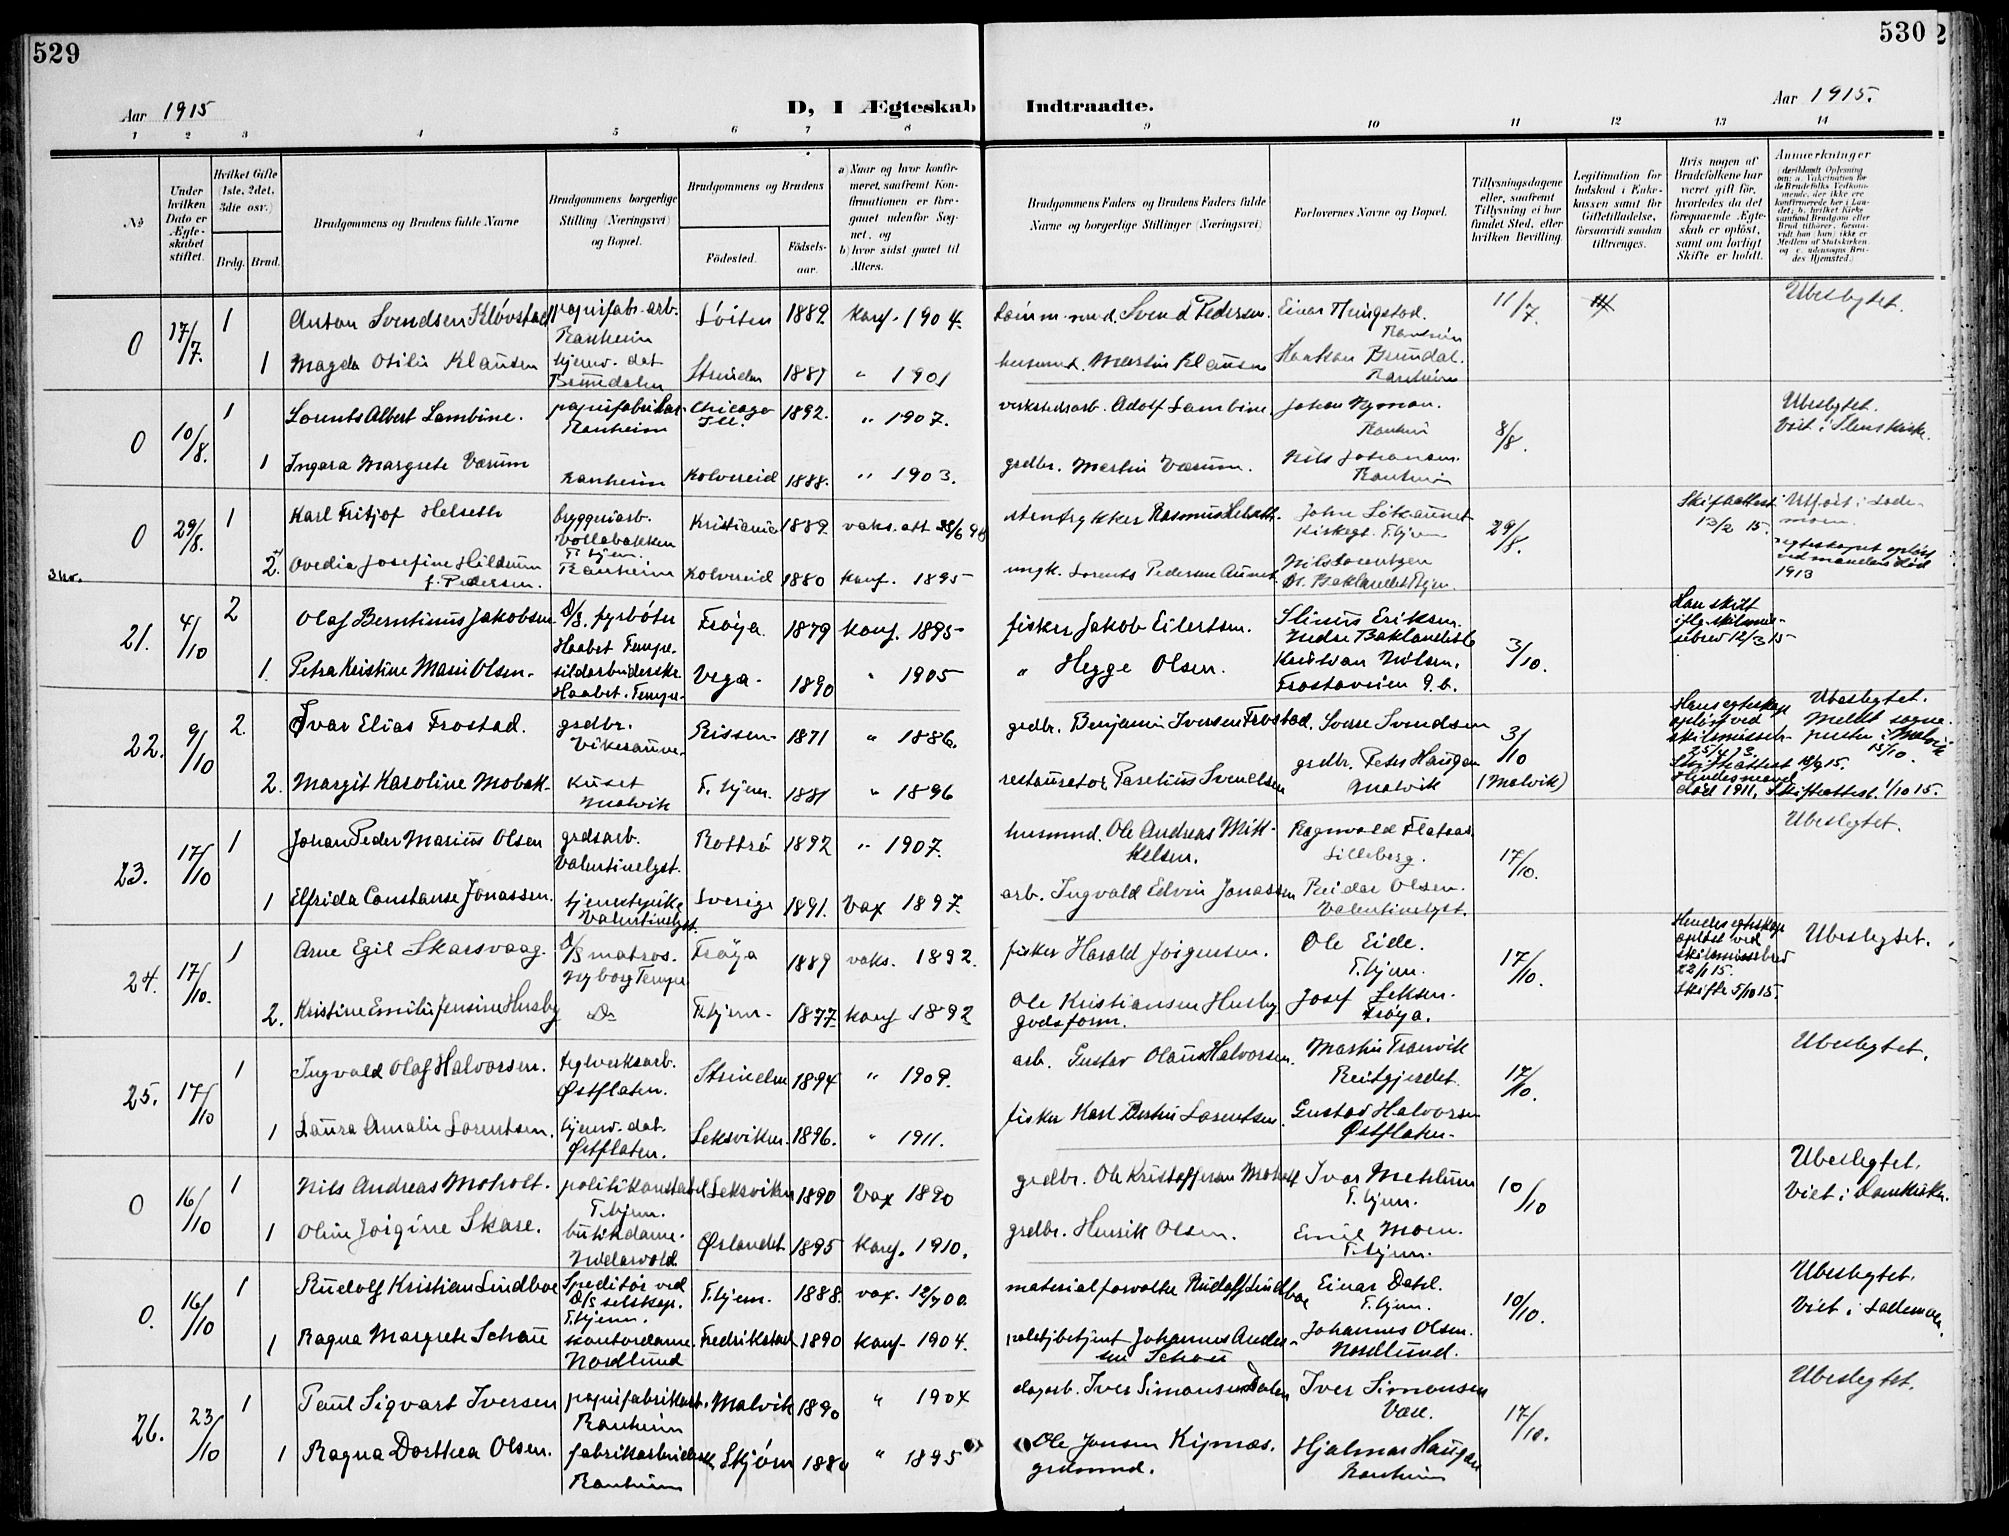 529
530
Aar 1915
D, I Ægteskab Indtraadte.
Aar 1915.
1 2 3 4 5 6 7 8 9 10 11 12 13 14
No
Under hvilken Dato er Ægteskabet stiftet.
Hvilket Gifte (1ste, 2det, 3die osv.)
Brdg. Brud.
Brudgommens og Brudens fulde Navne
Brudgommens borgerlige Stilling (Næringsvei) og Bopæl.
Brudgommens og Brudens
Fødested.
Fødselsaar.
a) Naar og hvor konfirmeret, saafremt Konfirmationen er foregaaet udenfor Sognet, og
b) hvor sidst gaaet til Alters.
Brudgommens Faders og Brudens Faders fulde Navne og borgerlige Stillinger (Næringsvei)
Forlovernes Navne og Bopæl.
Tillysningsdagene eller, saafremt Tillysning ei har fundet Sted, efter hvilken Bevilling.
Legitimation for Indskud i Enkekassen samt for Giftetilladelse, forsaavidt saadan tiltrænges.
Hvis nogen af Brudefolkene har været gift før, hvorledes da det foregaaende Ægteskab er opløst, samt om lovligt Skifte er holdt.
Anmærkninger
0 17/7. 1 Anton Svendsen Kløvstad papirfabr. arb. Ranheim Løiten 1882 konf. 1904. Svend Pedersen. Ranheim 11/7. Ubeslegtet.
1 Magda Otilie Klausen tjenv. dat. Strinden 1881 " 1901 husmd. Martin Klausen Haakon Brundal. Ranheim
0 10/8. 1 Lorents Albert Lambine. Ranheim Chicago Ill. 1892. " 1907. verkstedsarb. Adolf Lambine. Johan Nyman. Ranheim 8/8. Ubeslegtet. Viet i
1 Ingora Margrete Værum Ranheim Kolvereid 1888. " 1903. grdbr. Martin Værum. Nils Johansen. Ranheim
0 29/8. 1 Karl Fritjof Helseth bryggeriarb. Vollabakken T.hjem. Kristiania 1882 vaks. att Rasmus Helseth. 29/8. Skifteattest 13/2 15. Utført i Lademoen.
2. Ovedia Josefine Hildrum f. Pedersen. Ranheim Kolvereid 1880 konf. 1895 ungk. Lorents Pedersen Aunet. Nils Lorentzen ved mandens død 1913
21. 4/10 2 Olaf Berntinus Jakobsen D/S. fyrbøter Haabet Tempe. Frøya. 1879 konf. 1895 fisker Jakob Eilertsen. Eriksen. Indre Baklandet 3/10. Han skilt 12/3 15
1. Petra Kristine Marie Olsen. sildarbeiderske Haabet. Tempe Vega. 1890 " 1905 " Hegge Olsen. Kristian Nilsen. Frostaveien 9.b.
22. 9/10 2. Ivar Elias Frostad. grdbr. Vikesaune. Rissen 1871 " 1886. grdbr. Benjamin Iversen Frostad. Sverre Svendsen 3/10 (Malvik) Hans egteskap opløst ved Skifteattest Ubeslegtet. Meldt sogneprester i Malvik 13/10.
2. Margit Karoline Mobak. Malvik T.hjem. 1881 " 1896 restauratør Svendsen grdbr. Peter Haugan Malvik Hendes mand død 1911, Skifteattest. 1/10 15.
23. 17/10 1 Johan Peder Marius Olsen grdsarb. Valentinelyst. 1892 " 1907. husmnd. Ole Andreas Mikkelsen. Ragnvald Lilleberg. 17/10. Ubeslegtet.
1 Elfrida Constanse Jonassen. tjenestepike Valentinelyst. Sverige 1891. Vax 1897. arb. Ingvald Edvin Jonassen Reidar Olsen. Valentinelyst.
24. 17/10. 1 Arne Egil Skarsvaag. D/S matros. Nyborg Tempe Frøya 1889 vaks. 1892. fisker Harald Jørgensen. Ole Eide. T.hjem. 17/10. Hendes egteskap opløst ved skilsmissebrev 22/1 15. Skifte 5/10 15. Ubeslegtet.
2. Kristine Emilie Jensine Husby Do T.hjem. 1877. konf 1892 Ole Kristiansen Husby godsform. Josef Frøya.
25. 17/10 1 Ingvald Olaf Halvorsen. teglverksarb. Østflaten. Strinden 1894 " 1909. arb. Gustav Olaus Halvorsen. Martin Reitgjerdet. 17/10. Ubeslegtet.
1 Laura Amalie Lorentsen. tjenv. dat. Østflaten. Leksviken. 1896. " 1911. fisker Karl Lorentsen. Gustav Halvorsen Østflaten.
0 16/10 1 Nils Andreas Moholt. politikonstabel T.hjem. Leksviken 1890 Vax 1890 grdbr. Ole Kristoffersen Moholt Ivar Mehlum T.hjem. 10/10 Ubeslegtet. Viet i Domkirken.
1 Oline Jørgine Skare. butikdame. Nidarvold Ørlandet 1895 konf. 1910. grdbr. Henrik Olsen. Emil Moen. T.hjem.
0. 16/10 1 Rudolf Kristian Lindboe Speditør ved D/S selskap. T.hjem. T.hjem. 1888. vax. 12/7 00. materialforvalter Rudolf Lindboe Einar Dahl. T.hjem. 10/10. Ubeslegtet. Viet i Lademoen.
1 Ragna Margrete Schau kontordame Nordlund Fredrikstad 1890 konf. 1904. politibetjent Johannes Andersen Schau Johannes Olsen. Nordlund.
26. 23/10 1 Paul Sigvart Iversen papirfabrikarb. Ranheim Malvik 1890 " 1904 dagarb. Iver Simonsen Iver Simonsen Være. 17/10. Ubeslegtet.
1 Ragna Dorthea Olsen. fabrikarbeiderske Ranheim Skjørn 1880 " 1895 Ole Jonsen Kipnæs. grdmnd. Hjalmar Haugan Ranheim